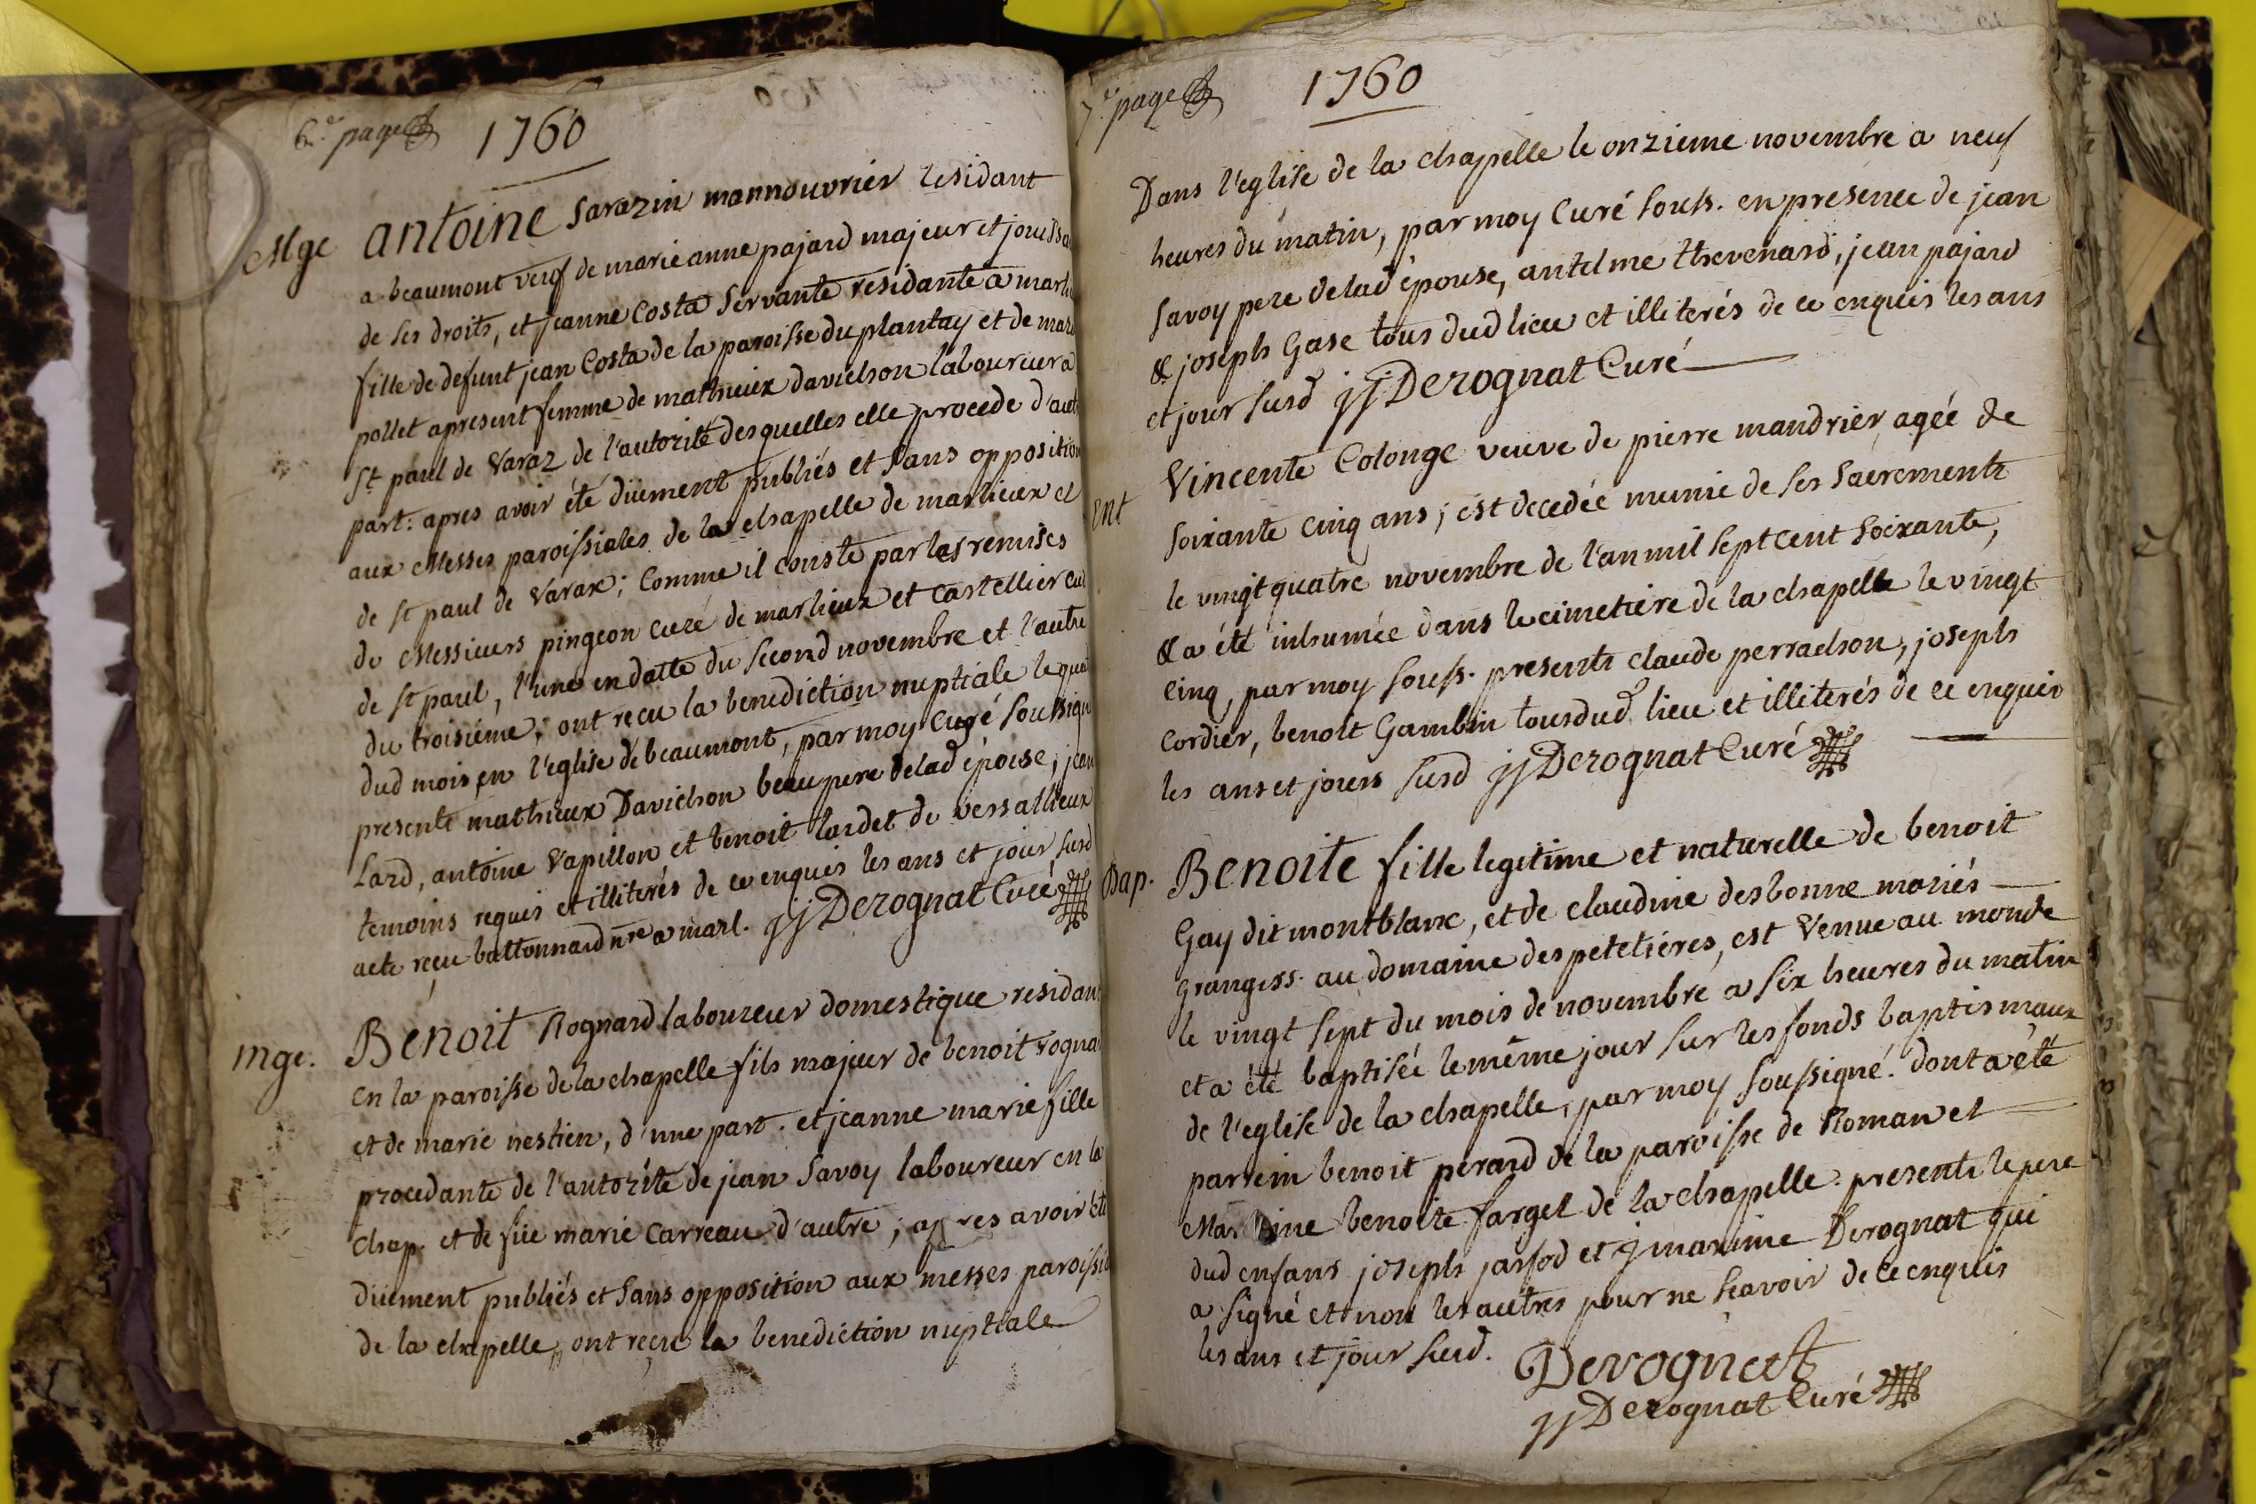 6.e page
1760
Mge antoine Sarazin mannouvrier residant
a beaumont veuf de marie anne pajard majeur et jouissa
de ses droits, et jeanne Costa Servante residante a marli
fille de defunt jean Costa de la paroisse du plantay et de mari
pollet apresent femme de mathieux davichon laboureur a
St paul de Varaz de l'autorité desquelles elle procede d'autr
part: apres avoir été düement publiés et sans opposition
aux Messes paroissiales de la chapelle de marlieux et
de St paul de Varax; Comme il conste par les remises
de Messieurs pingeon curé de marlieux et castellier cu
de St paul, l'une en datte du second novembre et l'autre
du troisiéme; ont reçu la benediction nuptiale le qua
dud mois, en l'eglise de beaumont, par moy Curé soussign
presents mathieux Davichon beaupere de lad épouse, jean
Lard, antoine Vapillon et benoit lardet de versailleux
temoins requis et illiterés de ce enquis les ans et jour susd
acte reçu battonnard nre a marl. jj Derognat Curé
mge. Benoit Rognard laboureur domestique residan
en la paroisse de la chapelle fils majeur de benoit rogna
et de marie nestien, d'une part. et jeanne marie fille
procedante de l'autorité de jean Savoy laboureur en la
chap. et de füe marie Carreau d'autre; apres avoir été
düement publiés et sans opposition aux messes paroissia
de la chapelle, ont reçu la benediction nuptiale
7.e page
1760
Dans l'eglise de la chapelle le onzieme novembre a neuf
heures du matin, par moy Curé souss. en presence de jean
Savoy pere de lad épouse, antelme thevenard, jean pajard
& joseph Gase tous dud lieu et illiterés de ce enquis les ans
et jour susd jj Derognat Curé
Ent Vincente Colonge veuve de pierre mandrier, agée de
soixante cinq ans, est decedée munie de ses sacrements
le vingt quatre novembre de l'an mil sept cent soixante,
& a été inhumée dans le cimetiere de la chapelle le vingt
cinq, par moy souss. presents claude perrachon, joseph
cordier, benoit Gambin tous dud. lieu et illiterés de ce enquis
les ans et jours susd jj Derognat Curé
Bap. Benoite fille legitime et naturelle de benoit
Gay dit montblanc, et de claudine desbonne mariés
grangrs. au domaine des petetiéres, est Venue au monde
le vingt sept du mois de novembre a six heures du matin
et a été baptisée le même jour sur les fonds baptismaux
de l'eglise de la chapelle, par moy soussigné. dont a été
parrein benoit perard de la paroisse de Roman et
Marrine benoite farget de la chapelle. presents le pere
dud enfans joseph jasfod et j maxime Derognat qui
a signé et non les autres pour ne sçavoir de ce enquis
les ans et jour susd.
Derognat
jj Derognat Curé